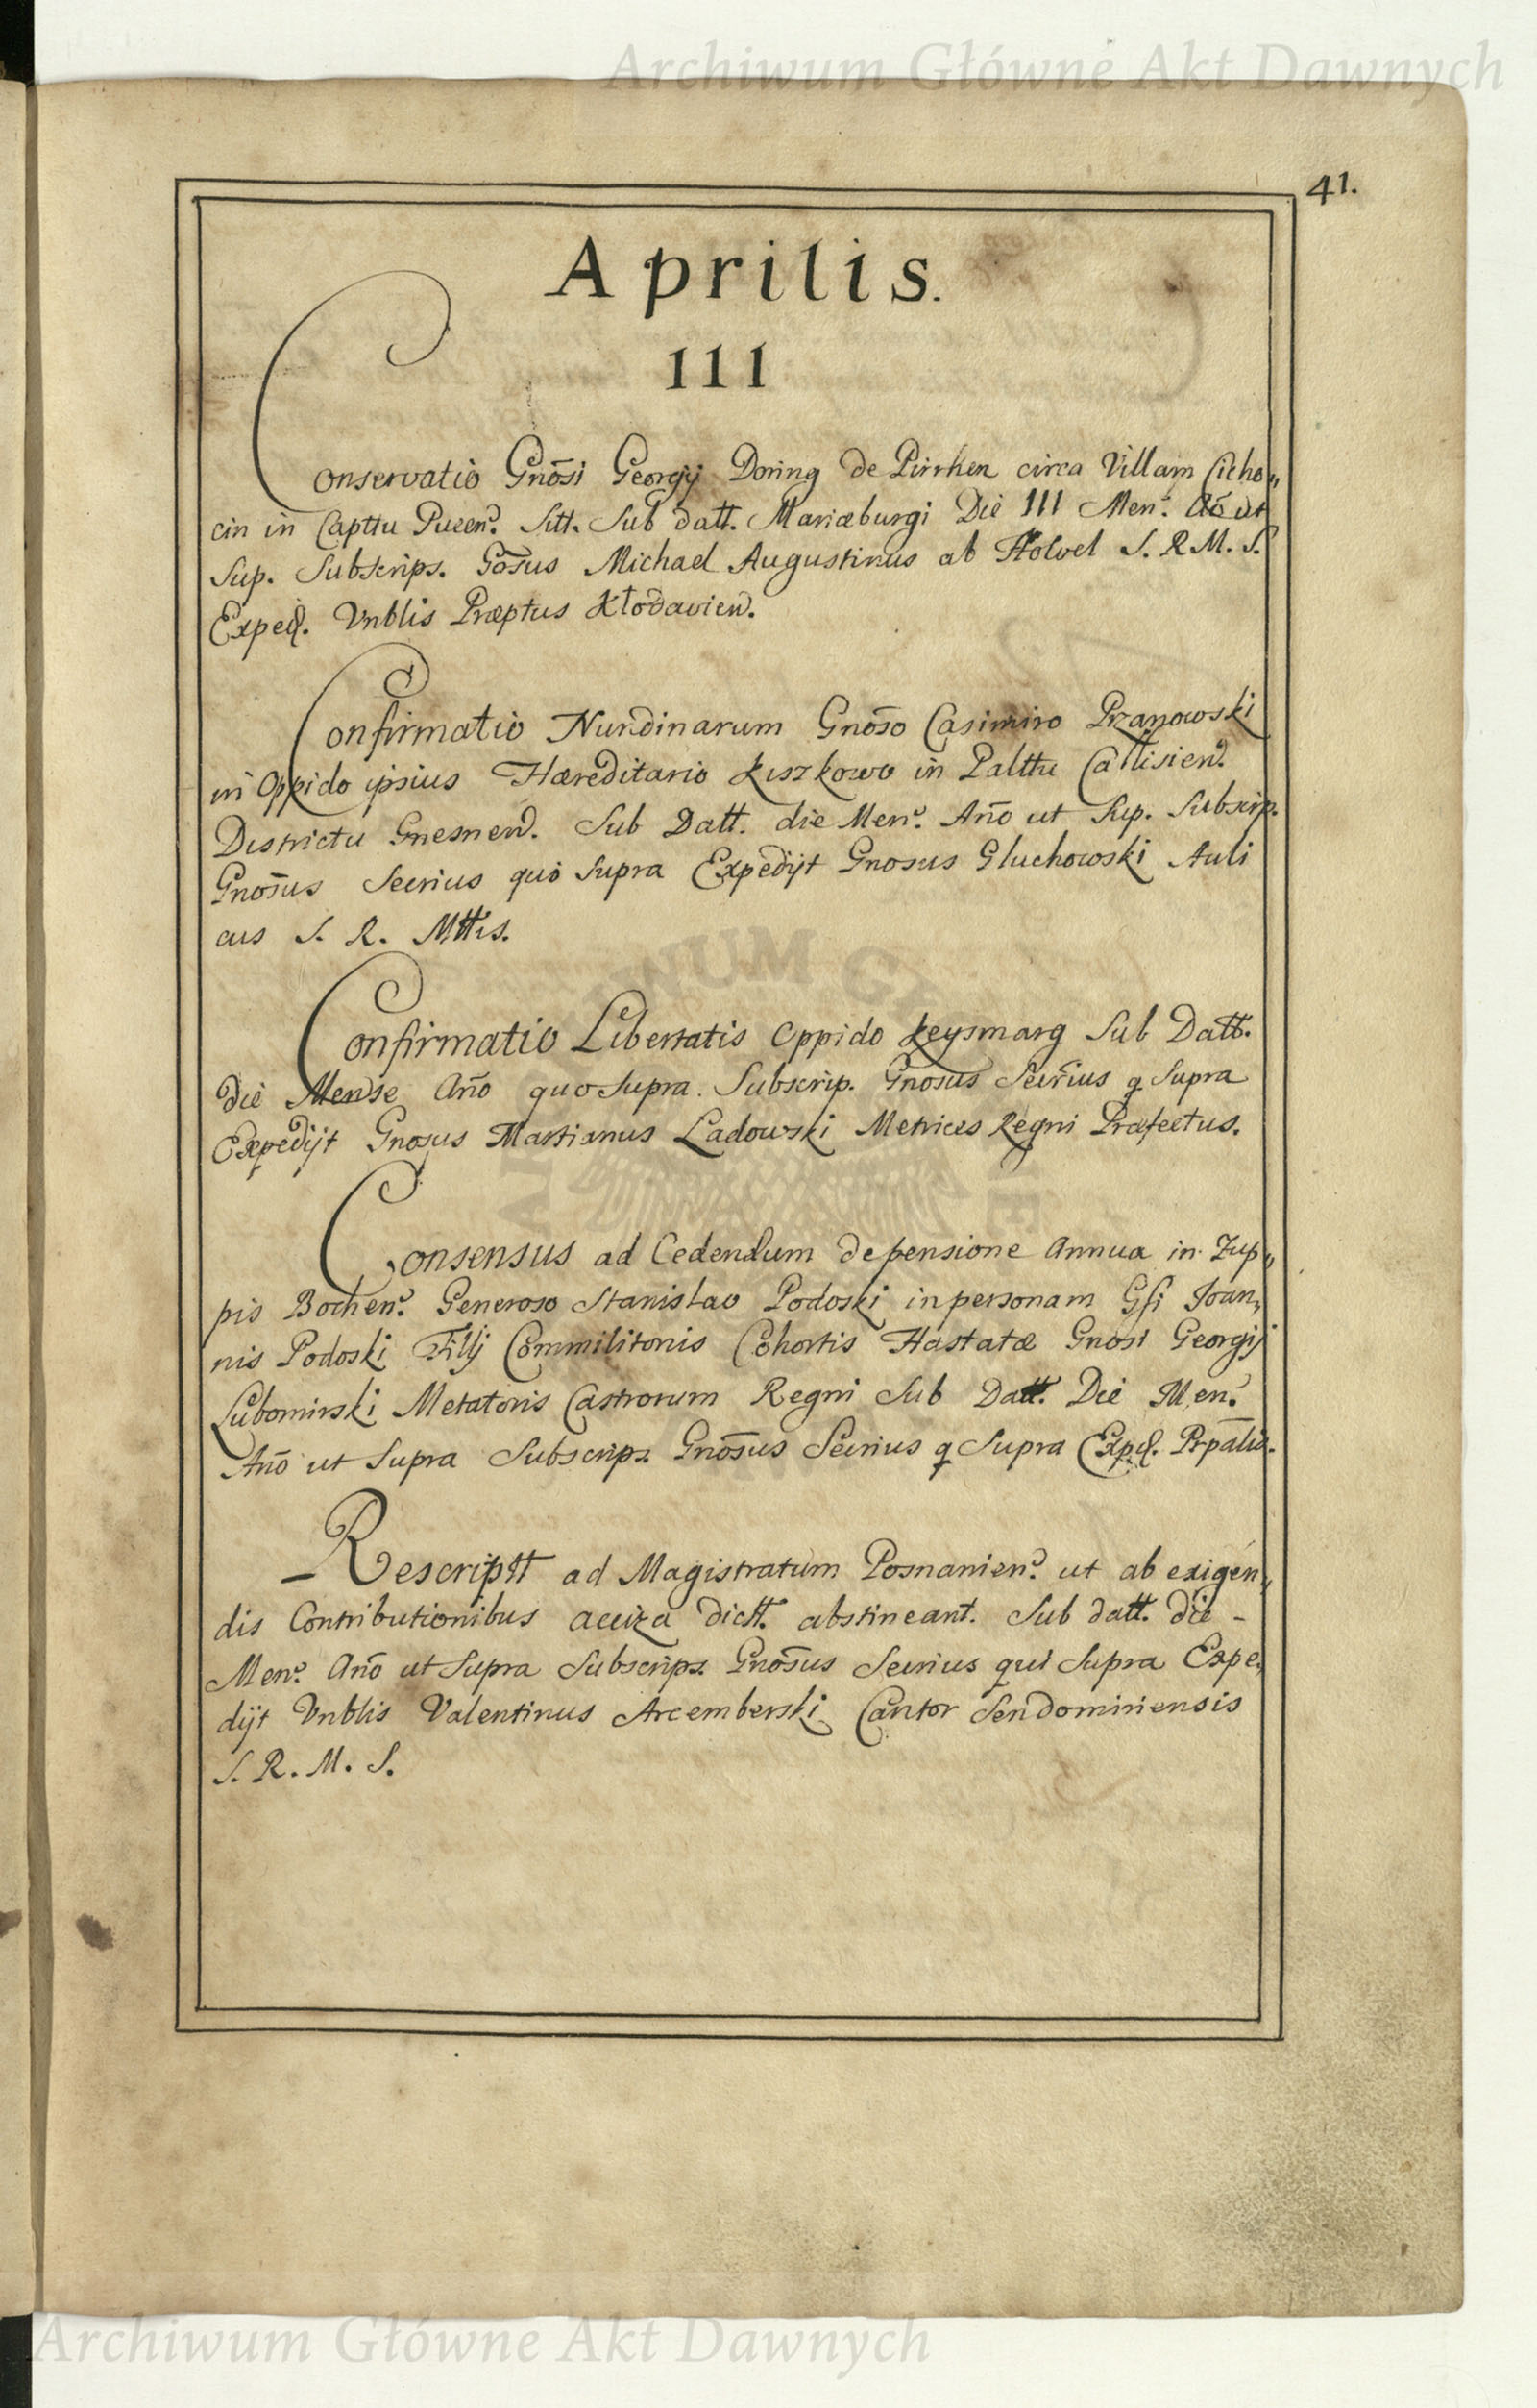 Archiwum Główne Akt Dawnych
41.
Aprilis.
III
Conservatio Gnōsi Georgij Doring de Pirrhen circa Villam Cicho„
cin in Capttu Pucen. Sitt. Sub datt. Mariæburgi Die III Men. Aō ut
Sup. Subscrips. Gōsus Michael Augustinus ab Holvel S. R. M. S.
Exped. Vnblis Præptus Kłodavien.
Confirmatio Nundinarum Gnōso Casimiro Przanowski
in Oppido ipsius Hæreditario Kiszkowo in Palttu Callisien.
Districtu Gnesnen. Sub Datt. die Men. Año ut Sup. Subscrip.
Gnōsus Secrius qui Supra Expedijt Gnosus Gluchowski Auli
cus S. R. Mttis.
Confirmatio Libertatis Oppido Keysmarg Sub Datt.
die Mense Año quo Supra. Subscrip. Gnosus Secrius q Supra
Expedijt Gnosus Martianus Ladowski Metrices Regni Præfectus.
Consensus ad Cedendum de pensione Annua in Zup„
pis Bochen. Generoso Stanislao Podoski in personam Gsi Joan„
nis Podoski Filij Commilitonis Cohortis Hastatæ Gnosi Georgij
Lubomirski Metatoris Castrorum Regni Sub Datt. Die Men.
Año ut Supra Subscrips. Gnōsus Secrius q Supra Exped. Prpalis.
Rescriptt ad Magistratum Posnanien. ut ab exigen„
dis Contributionibus acciza dictt. abstineant. Sub datt. die -
Men. Año ut Supra Subscrips. Gnōsus Secrius qui Supra Expe„
dijt Vnblis Valentinus Arcemberski Cantor Sendomiriensis
S. R. M. S.
Archiwum Główne Akt Dawnych